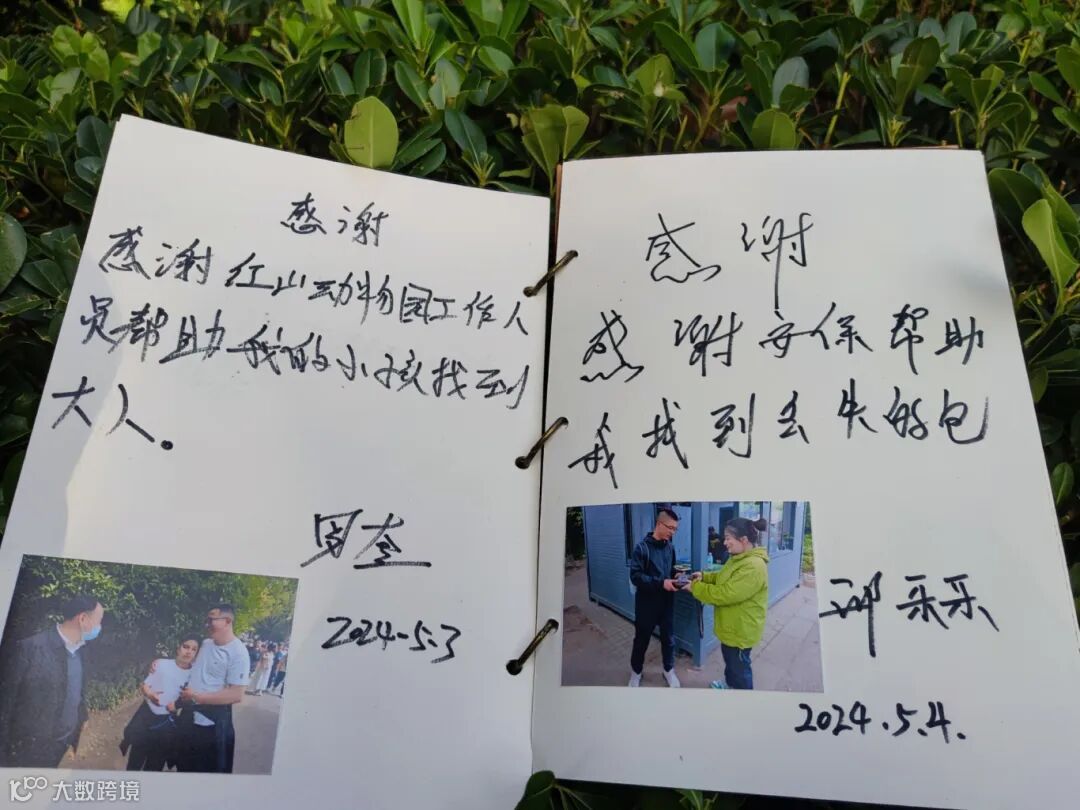 感谢
感谢红山动物园工作人
员帮助我的小孩找到
大人。
2024-5.3
感谢
感谢安保帮助
我找到丢失的包
采采
2024.5.4.
大数跨境